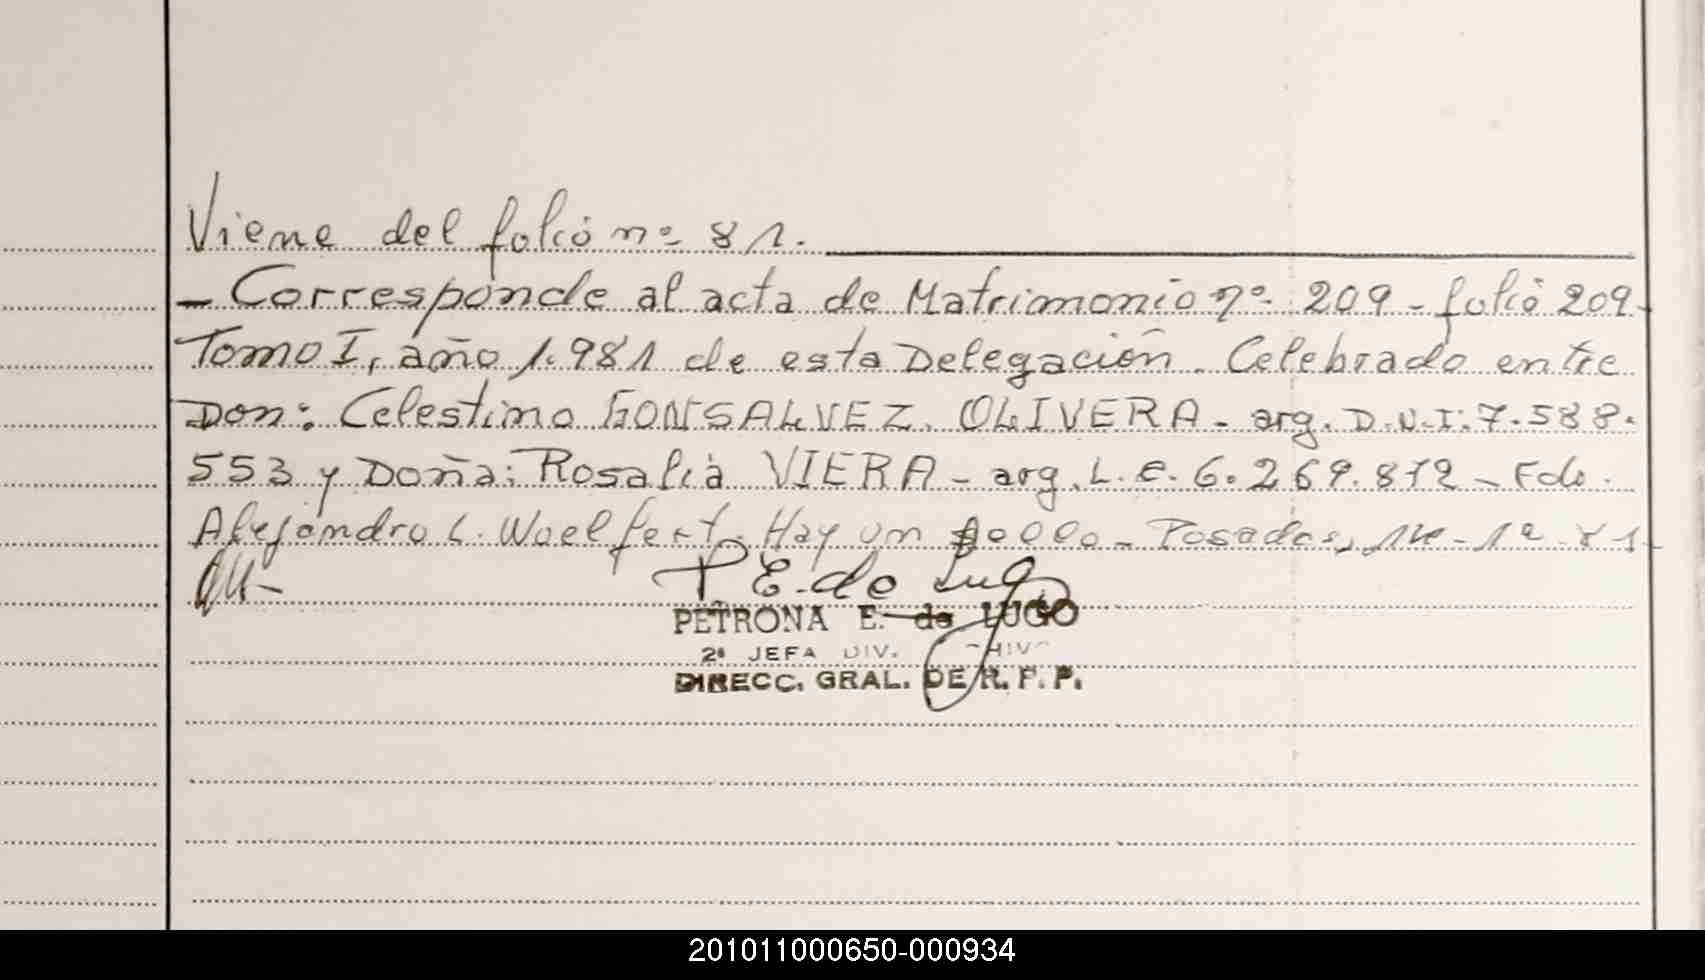 Viene del folio nº 81.
- Corresponde al acta de Matrimonio nº 209 - folio 209-
Tomo I, año 1.981 de esta Delegación. Celebrado entre
Don: Celestino GONSALVEZ OLIVERA - arg. D.N.I: 7.588.
553 y Doña: Rosalia VIERA - arg. L.C. 6.269.812 - Fdo.
Alejandro L. Woelfert. Hay un sello - Posadas,
P E. de Lugo
PETRONA E. de LUGO
2ª JEFA DIV.
DIRECC. GRAL. DE R. P. P.
201011000650-000934